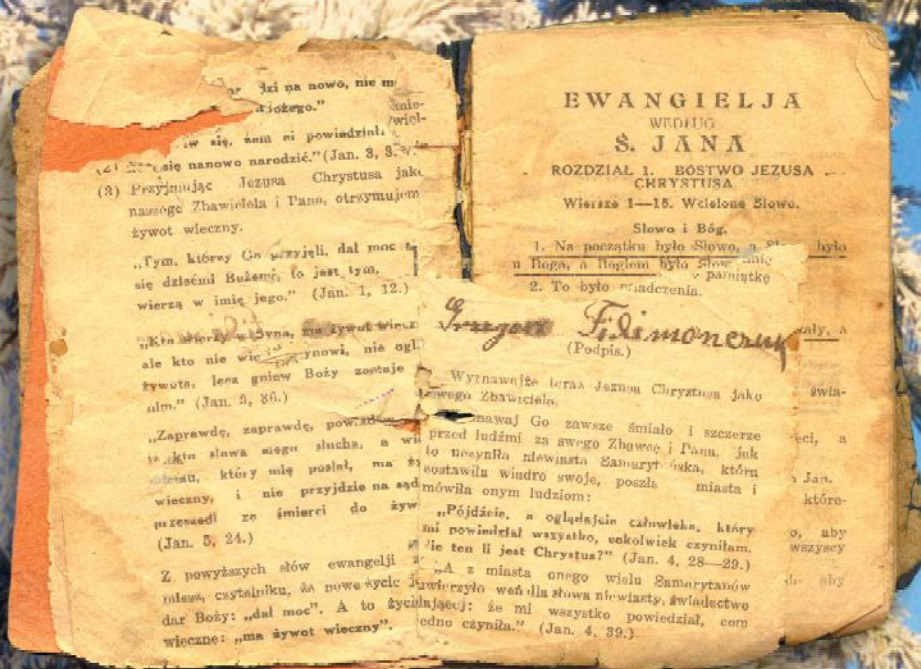 dzi na nowo, nie m
Bożego."
w się, żem ci powiedział:
się nanowo narodzić." (Jan. 3, 3.
(2) Przyjmując Jezusa Chrystusa jako
naszego Zbawiciela i Pana, otrzymujem
żywot wieczny.
„Tym, którzy Go przyjęli, dał moc
się dziećmi Bożemi, to jest tym,
wierzą w imię jego." (Jan. 1, 12.)
„Kto wierzy w Syna, ma żywot wiecz
ale kto nie wie ynowi, nie ogl
żywota, lecz gniew Boży zostaje
nim." (Jan. 3, 36.)
„Zaprawdę, zaprawdę, powiad
iż kto słowa mego słucha, a wi
onemu, który mię posłał, ma ży
wieczny, i nie przyjdzie na sąd
przeszedł ze śmierci do żyw
(Jan. 5, 24.)
Z powyższych słów ewangelji
miesz, czytelniku, że nowe życie
dar Boży: „dał moc". A to życi
wieczne: „ma żywot wieczny".
EWANGIELJA
WEDŁUG
Ś. JANA
ROZDZIAŁ 1. BÓSTWO JEZUSA
CHRYSTUSA
Wiersze 1—18. Wcielone Słowo.
Słowo i Bóg.
1. Na początku było Słowo, a było
u Boga, a Bogiem było Słow
pamiątkę
2. To było
adczenia.
Grzegorz Filimoneruk
(Podpis.)
Wyznawajże teraz Jezusa Chrystusa jako
wego Zbawiciela.
nawaj Go zawsze śmiało i szczerze
przed ludźmi za swego Zbawcę i Pana, jak
to uczyniła niewiasta Samarytańska, która
zostawiła wiadro swoje, poszła miasta i
mówiła onym ludziom:
„Pójdźcie, a oglądajcie człowieka, który
mi powiedział wszystko, cokolwiek czyniłam.
ie ten li jest Chrystus?" (Jan. 4, 28—29.)
„A z miasta onego wielu Samarytanów
uwierzyło weń dla słowa niewiasty, świadectwo
dającej: że mi wszystko powiedział, com
edno czyniła." (Jan. 4, 39.)
ały, a
świa-
eci, a
Jan.
które-
o, aby
wszyscy
aby